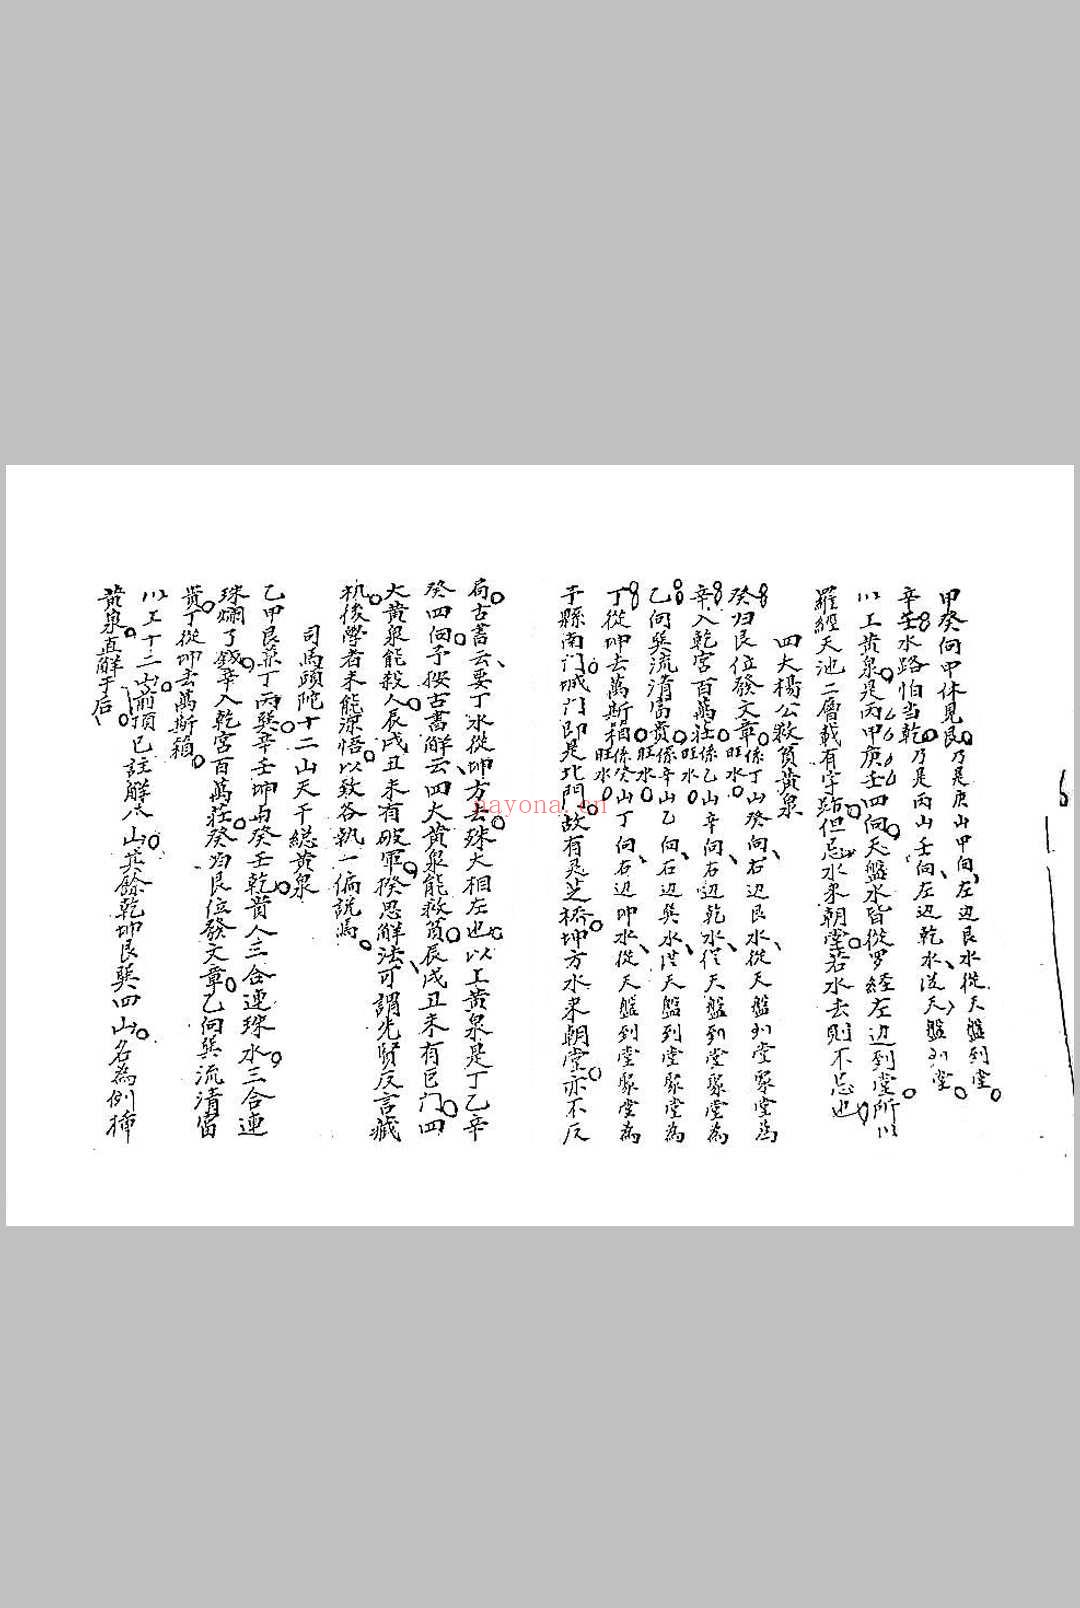 甲癸向甲休見艮乃是庚山甲向左边艮水從天盤到堂
辛壬水路怕当乾乃是丙山壬向左边乾水從天盤到堂
以工黄泉是丙甲庚壬四向天盤水皆從罗經左边到堂所以
羅經天池二層載有字路但忌水來朝堂若水去則不忌也
四大楊公救貧黄泉
癸归艮位發文章係丁山癸向右边艮水從天盤到堂聚堂為旺水
辛入乾宮百萬莊係乙山辛向右边乾水從天盤到堂聚堂為旺水
乙向巽流清富貴係辛山乙向右边巽水從天盤到堂聚堂為旺水
丁從坤去萬斯箱係癸山丁向右边坤水從天盤到堂聚堂為旺水
于縣南门城门即是北門故有 芝橋坤方水來朝堂亦不反
局古書云要丁水從坤方去殊大相左也以工黄泉是丁乙辛
癸四向予按古書解云四大黄泉能救貧辰戌丑未有巨门四
大黄泉能殺人辰戌丑未有破軍揆思解法可謂先賢反言藏
机後學者未能深悟以致各執一偏説焉
司馬頭陀十二山天干総黄泉
乙甲艮兼丁丙巽辛壬坤与癸壬乾貴人三合連珠水三合連
珠爛了錢辛入乾宮百萬莊癸归艮位發文章乙向巽流清富
貴丁從坤去萬斯箱
以工十二山前項已註解八山其餘乾坤艮巽四山名為例掃
黄泉直解于后
nayona.cn